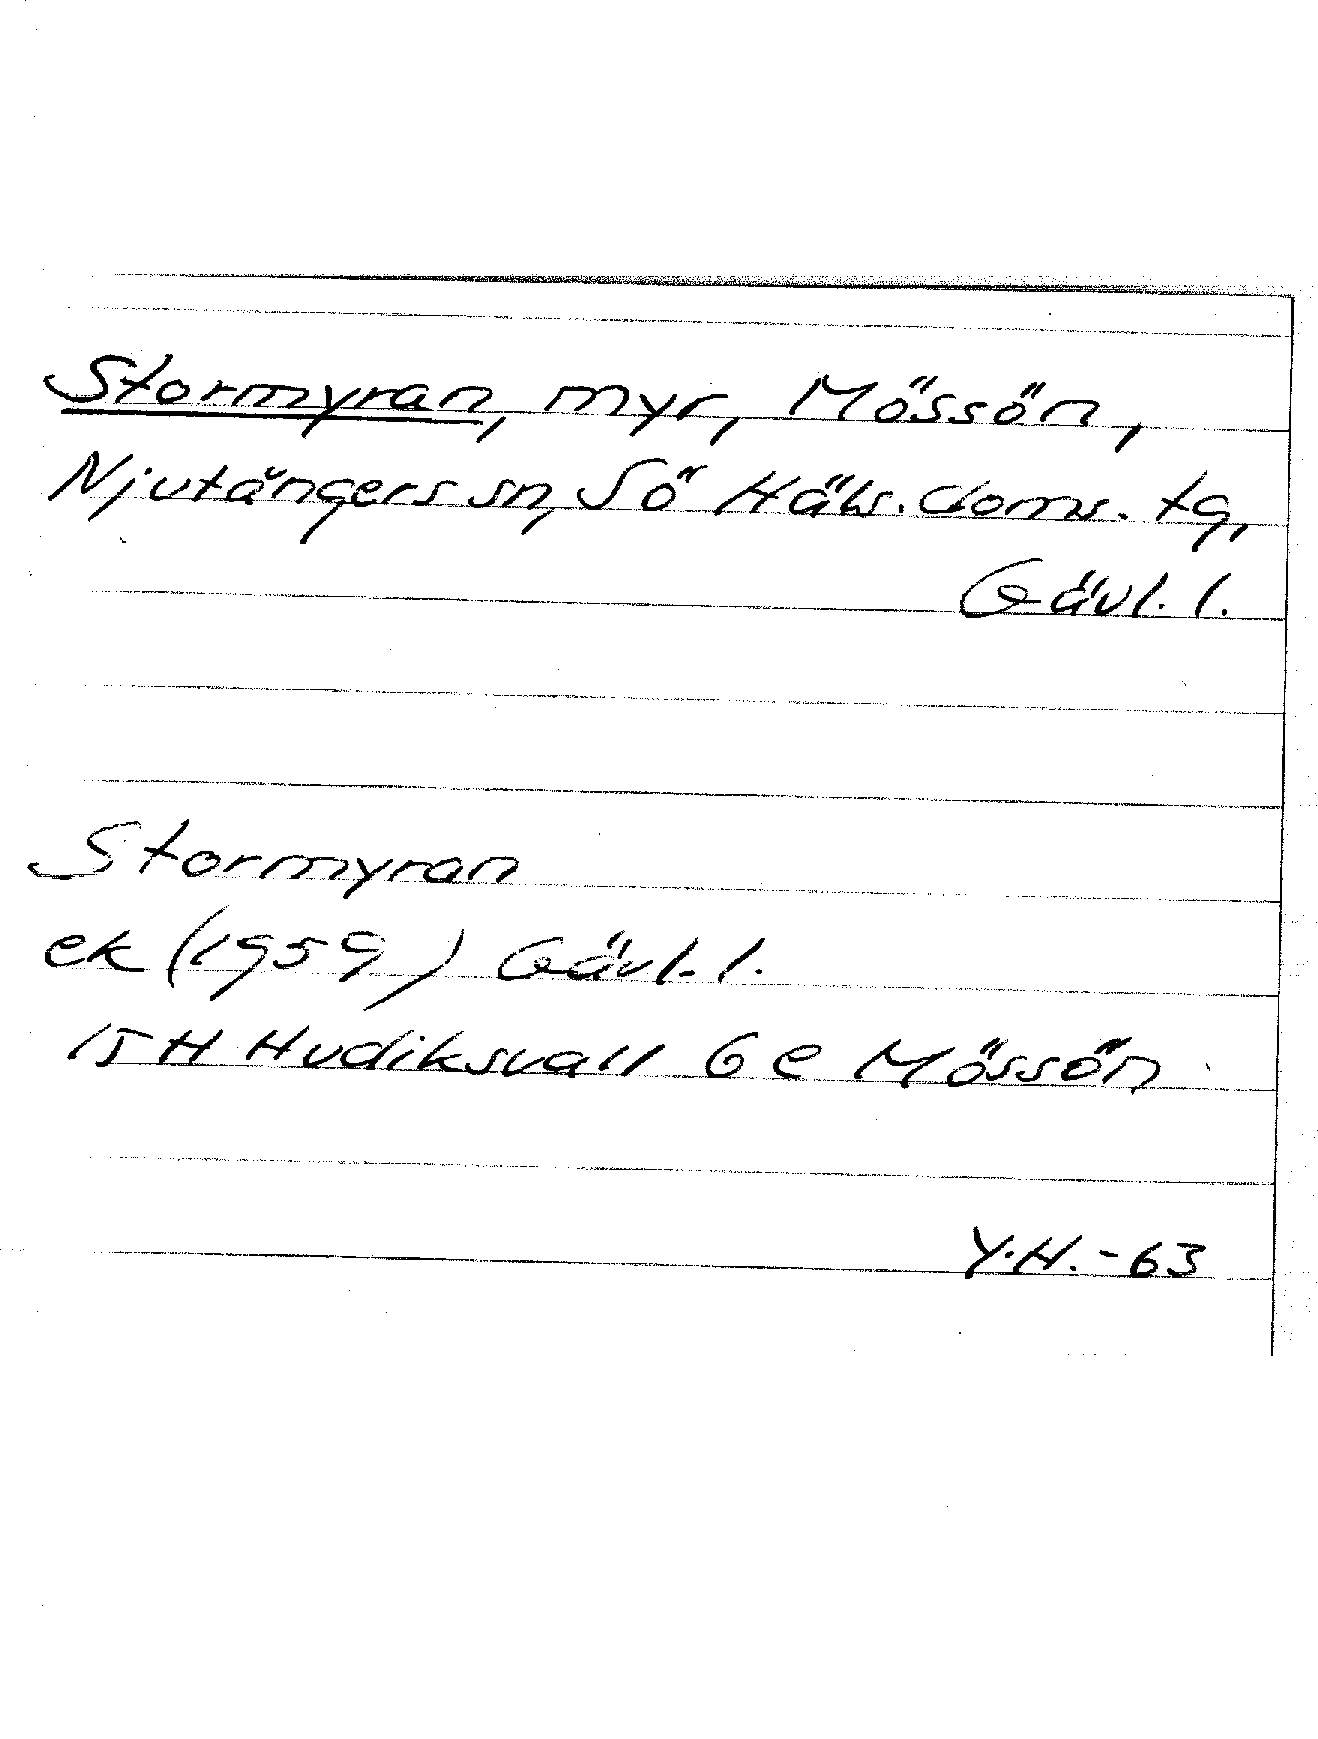 Stormyran, myr, Mössön,
Njutångers sn, Sö Häls. doms. tg,
Gävl. l.
Stormyran
ek (1959) Gävl. l.
15 H Hudiksvall 6 e Mössön
Y.H. - 63